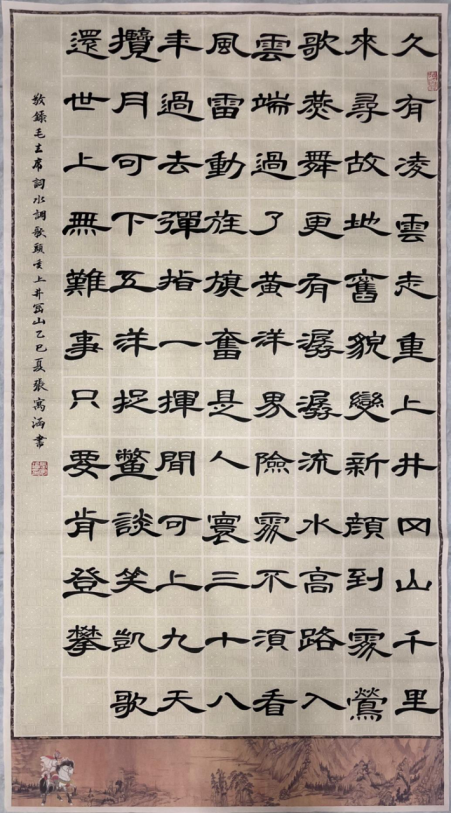 久有凌雲志重上井冈山千里
來尋故地舊貌變新顏到處鶯
歌燕舞更有潺潺流水高路入
雲端過了黃洋界險處不須看
風雷動旌旗奮是人寰三十八
年過去彈指一揮間可上九天
攬月可下五洋捉鱉談笑凱歌
還世上無難事只要肯登攀
敬錄毛主席詞水調歌頭重上井岡山乙巳夏張寓涵書